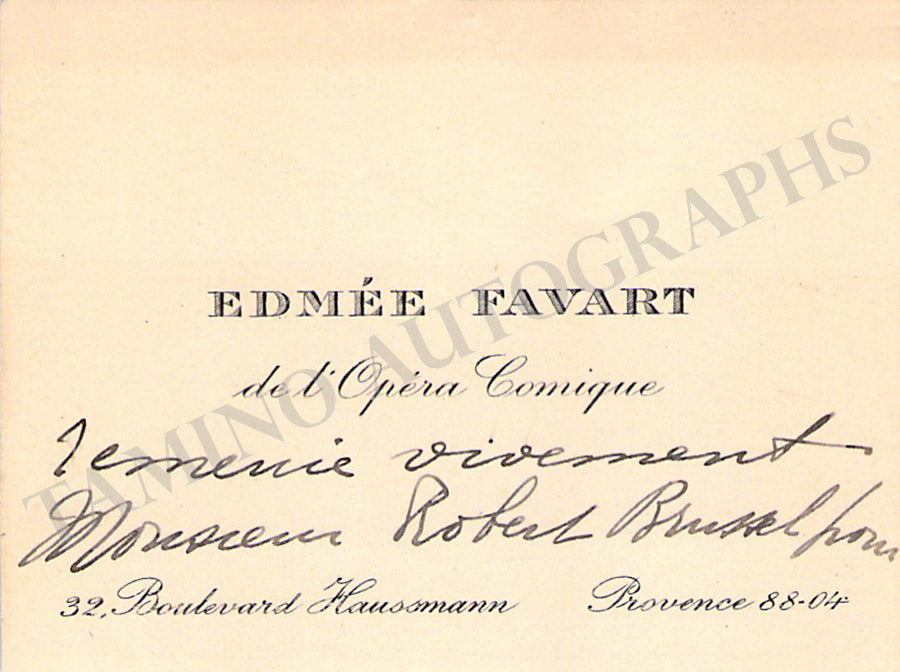 EDMÉE FAVART
de l'Opéra Comique
remercie vivement
Monsieur Robert Brussel pour
32, Boulevard Haussmann Provence 88-04
TAMINO AUTOGRAPHS